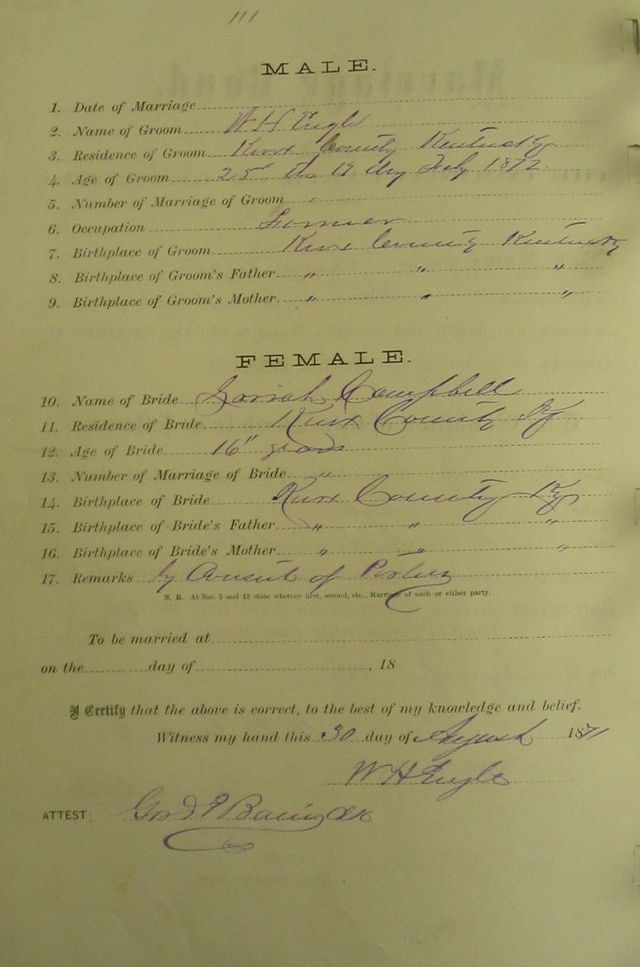 111
MALE.
1. Date of Marriage
2. Name of Groom W H Engle
3. Residence of Groom Knox County Kentucky
4. Age of Groom 25" the 19 day July 1872
5. Number of Marriage of Groom "
6. Occupation Farmer
7. Birthplace of Groom Knox County Kentucky
8. Birthplace of Groom's Father " " "
9. Birthplace of Groom's Mother " " "
FEMALE.
10. Name of Bride Campbell
11. Residence of Bride Knox County Ky
12. Age of Bride 16" years
13. Number of Marriage of Bride "
14. Birthplace of Bride Knox County Ky
15. Birthplace of Bride's Father " " "
16. Birthplace of Bride's Mother " " "
17. Remarks by Consent of
N. B. At Nos. 5 and 13 state whether first, second, etc., Marriage of each or either party.
To be married at
on the day of , 18
I Certify that the above is correct, to the best of my knowledge and belief.
Witness my hand this 30 day of August 1871
W H Engle
ATTEST: